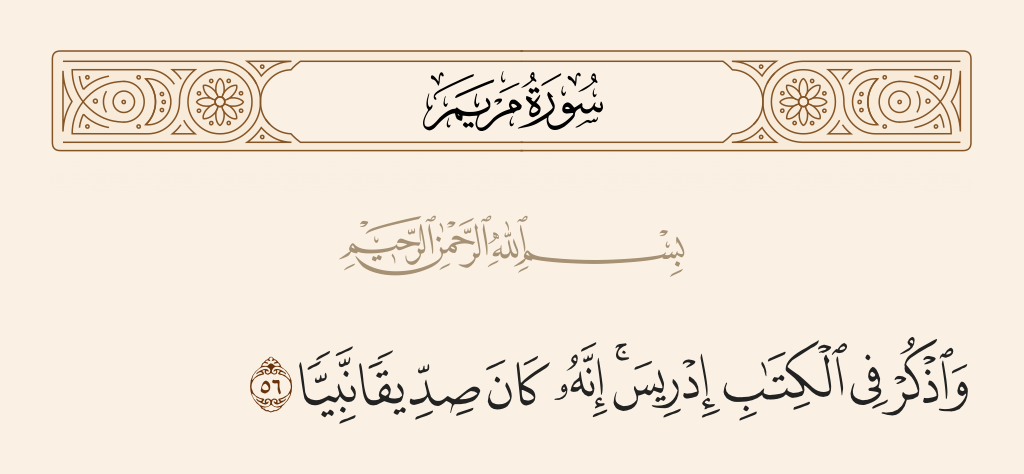 سُورَةُ مَرْيَمَ
بِسْمِ ٱللَّهِ ٱلرَّحْمَٰنِ ٱلرَّحِيمِ
وَٱذْكُرْ فِى ٱلْكِتَـٰبِ إِدْرِيسَ ۚ إِنَّهُۥ كَانَ صِدِّيقًا نَّبِيًّا ٥٦